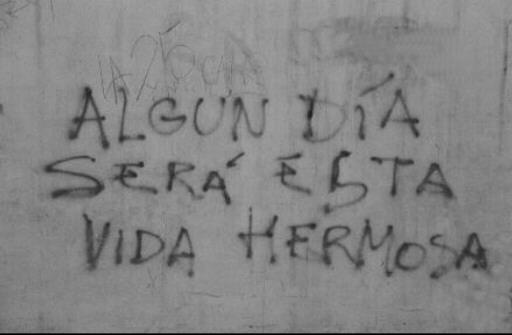 ALGUN DÍA
SERÁ ESTA
VIDA HERMOSA